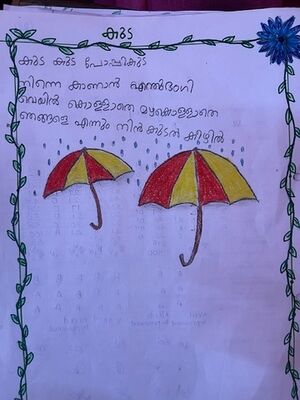 കുട
കുട കുട പോപ്പികുട
നിന്നെ കാണാൻ എന്തൽഭംഗി
വെയിൽ കൊള്ളാതെ മഴകൊള്ളാതെ
ഞങ്ങളെ എന്നും നിൻ കുടൽ കീഴിൽ